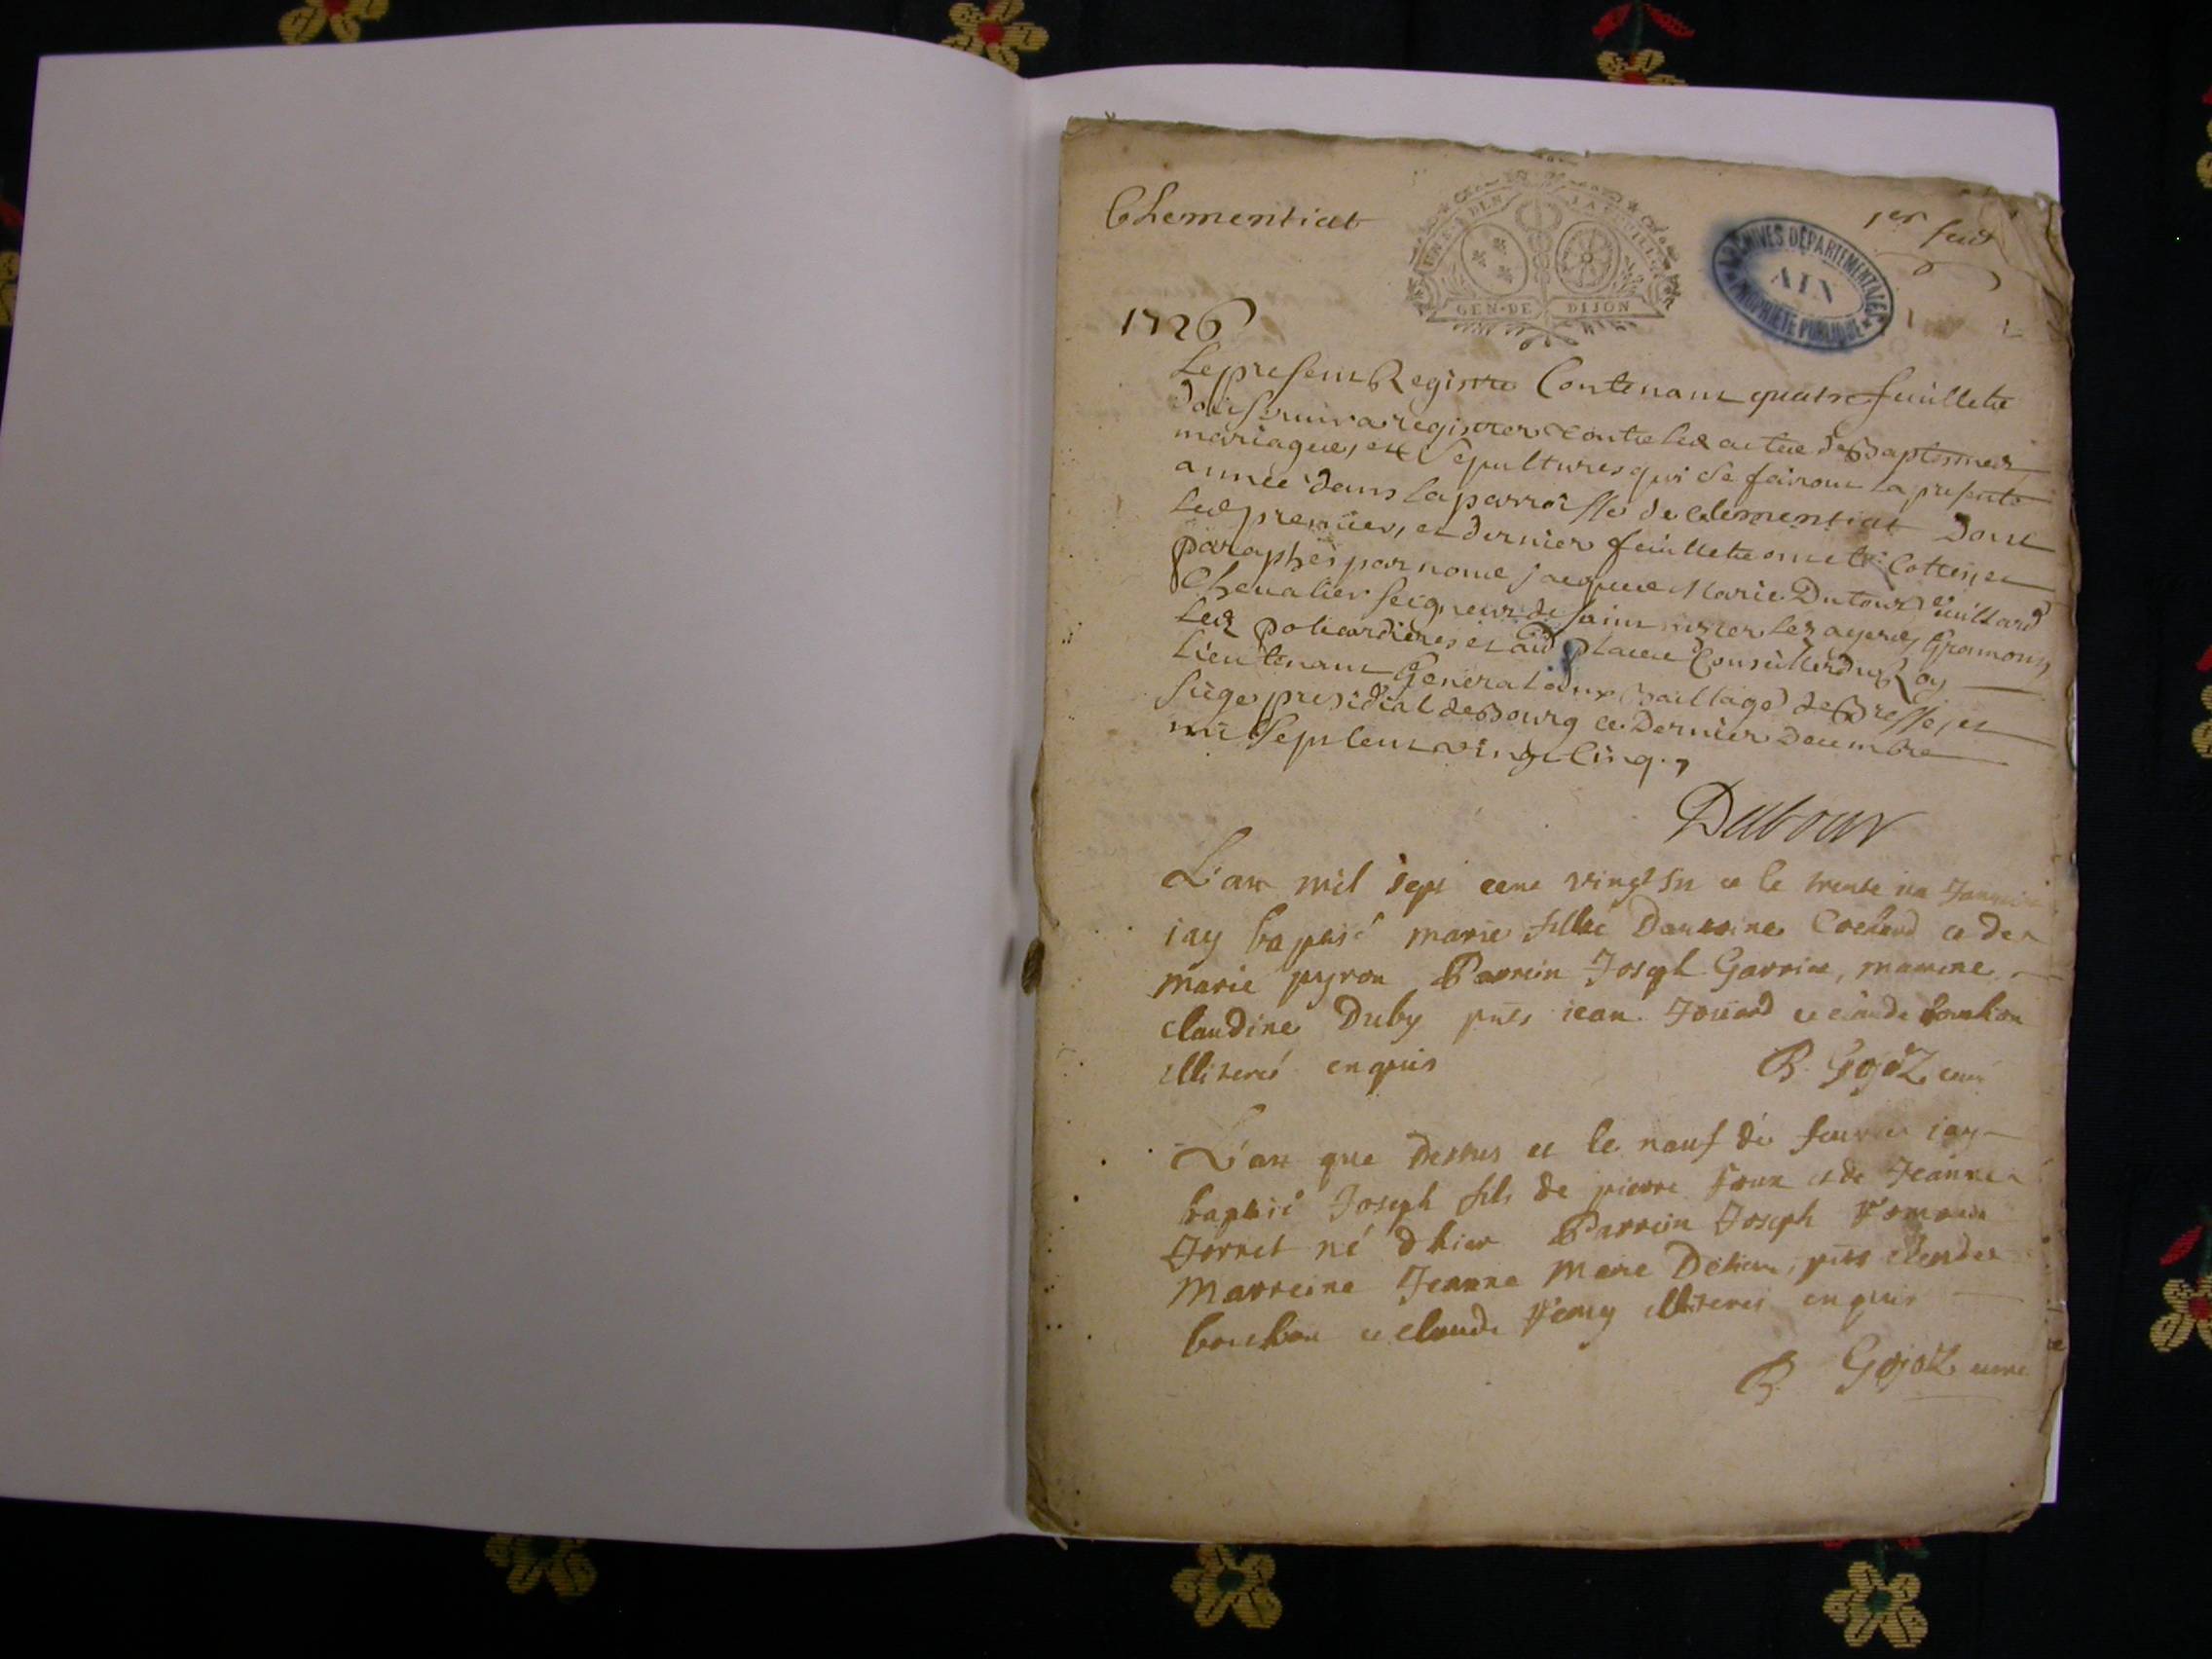 Chementiat
1er feuil
GEN · DE DIJON
ARCHIVES DÉPARTEMENTALES
AIN
PROPRIÉTÉ PUBLIQUE
1726
Le present Registre Contenant quatre feuillets
doit servir a registrer les actes de Baptesmes
mariages, et Sepultures qui se feiront la presente
année dans la parroisse de Clementiat Dont
Les premier, et dernier feuillets ont été Cottés, et
paraphés par nous jacques Marie Dutour Vuillard
Chevalier Seigneur de saint nizier Gramont,
Les poliardieres et places Conseiller du Roy
Lieutenant General aux Bailliage de Bresse, et
siege presidial de Bourg ce Dernier Decembre
mil Sept cent vingt Cinq.
Dutour
L'an mil sept cent vingt six et le trente un Janvier
iay baptisé marie fille Dantoine Cochard et de
marie pyron Parrein Joseph Garrin, mareine
claudine Duby pnts iean Joüard et claude bouchon
illiterés enquis
B. Gojoz curé
L'an que dessus et le neuf de feuvrier iay
baptisé Joseph fils de pierre et de Jeanne
né dhier Parrein Joseph
Marreine Jeanne Marie pnts
bouchon et claude illiterés enquis
B. Gojoz curé